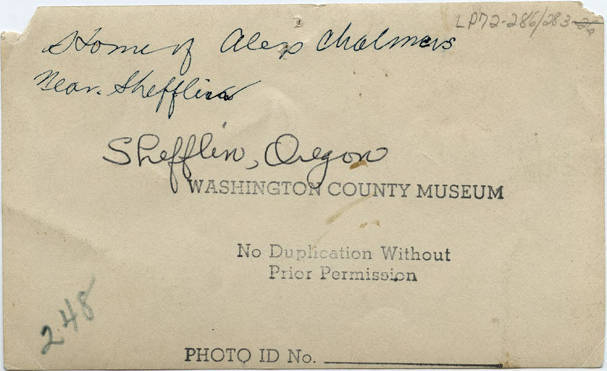 LP72-286/283-20
Home of Alex Chalmers
Near. Shefflin
Shefflin, Oregon
WASHINGTON COUNTY MUSEUM
No Duplication Without
Prior Permission
248
PHOTO ID No.